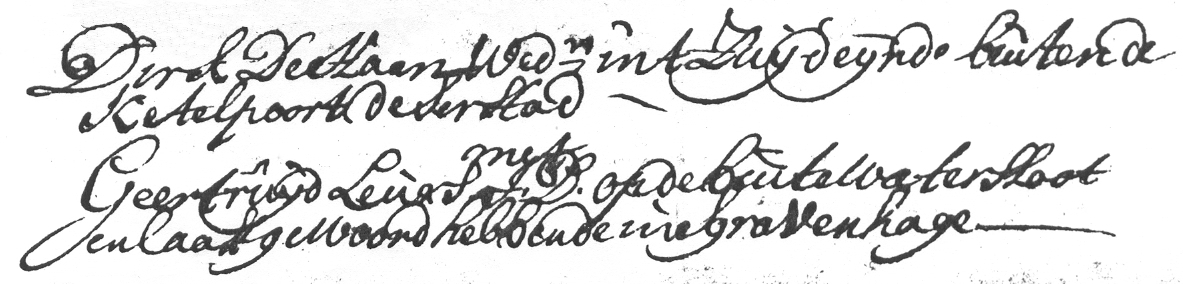 Dirck De Haan Wedn.r in't Zuijdeijnde buiten de
Ketelpoort deser Stad
mett
Geertruijd Leuas J:D. op de buite Waterstoot
en laast gewoond hebbende in sgravenhage